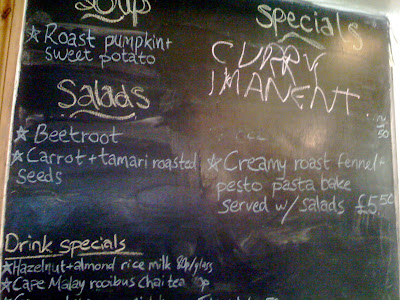 Soup
★ Roast pumpkin +
sweet potato
Salads
★ Beetroot
★ Carrot + tamari roasted
seeds
Drink specials
★ Hazelnut + almond rice milk 80p/glass
★ Cape Malay rooibus chai tea
specials
CURRY
IMANENT
50
★ Creamy roast fennel +
pesto pasta bake
served w/ salads £5.50